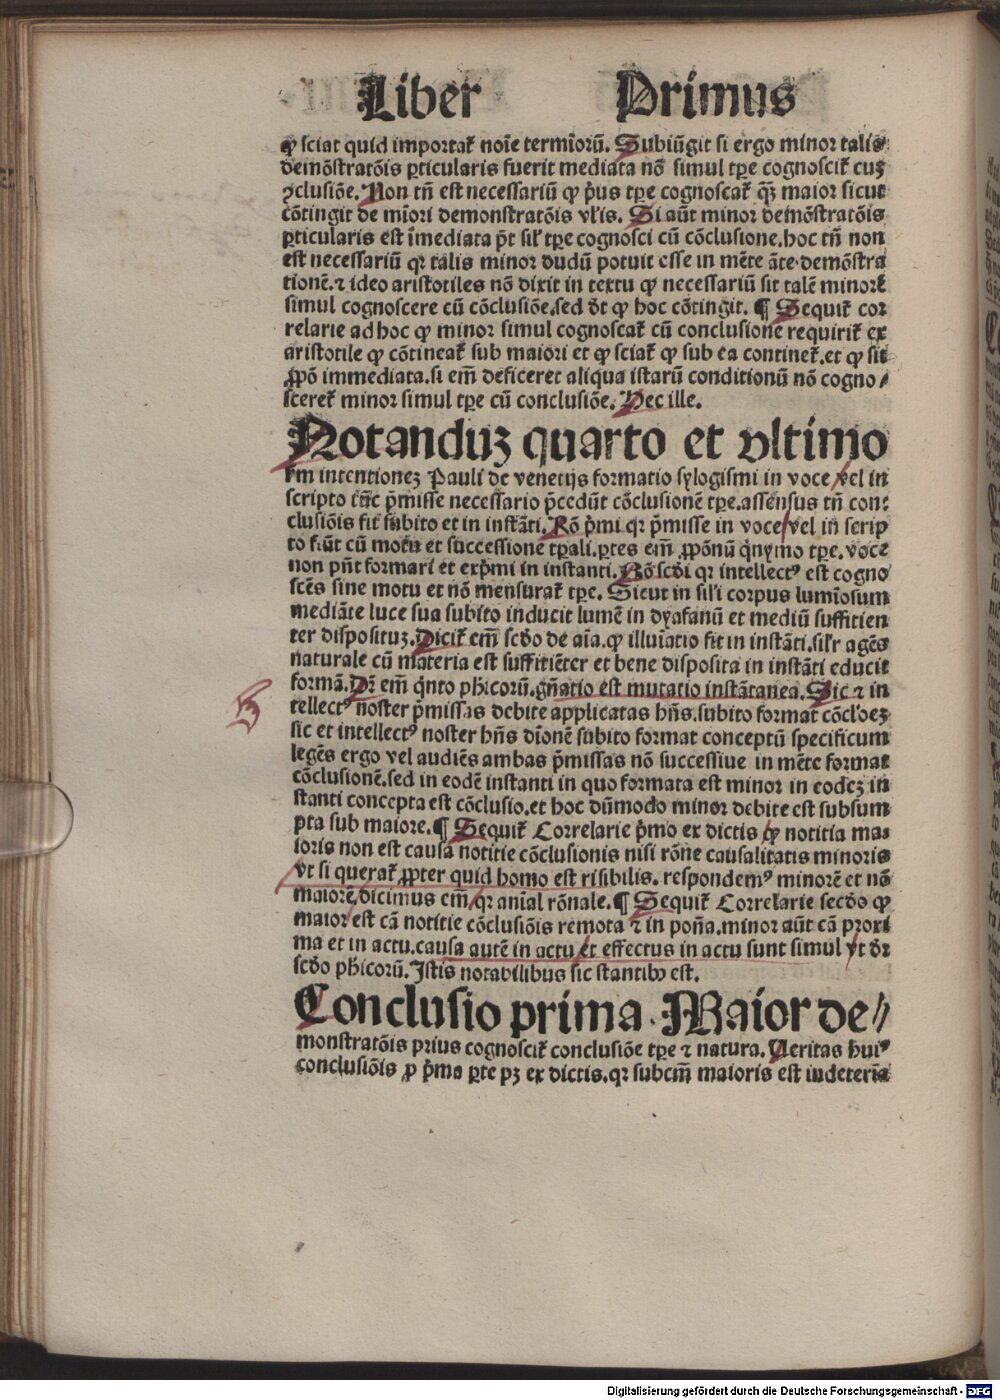 Liber Primus
ꝙ sciat quid importat᷑ noīe termīorū. Subiūgit si ergo minor talis
demōstratōis ꝑticularis fuerit mediata nō simul tꝑe cognoscit᷑ cuꝫ
ꝯclusiōe. Non tn̄ est necessariū ꝙ p̄us tꝑe cognoscat᷑ qꝫ maior sicut
cōtingit de mīori demonstratōis vl'is. Si aūt minor demōstratōis
ꝑticularis est īmediata pōt sil' tꝑe cognosci cū cōclusione. hoc tn̄ non
est necessariū qꝛ talis minor dudū potuit esse in mēte āte demōstra
tionē. ⁊ ideo aristotiles nō dixit in textu ꝙ necessariū sit talē minorē
simul cognoscere cū cōclusiōe. sed dt̄ ꝙ hoc cōtingit. ¶ Sequit᷑ cor
relarie ad hoc ꝙ minor simul cognoscat᷑ cū conclusione requirit᷑ ex
aristotile ꝙ cōtineat᷑ sub maiori et ꝙ sciat᷑ ꝙ sub ea continet᷑. et ꝙ sit
ꝓpō immediata. si em̄ deficeret aliqua istarū conditionū nō cogno/
sceret᷑ minor simul tꝑe cū conclusiōe. Hec ille.
Notanduꝫ quarto et vltimo
ẜm intentioneꝫ Pauli de venetijs formatio sylogismi in voce vel in
scripto tūc p̄misse necessario p̄cedūt cōclusionē tꝑe. assensus tn̄ con:
clusiōis fit subito et in instāti. Rō p̄mi. qꝛ p̄misse in voce vel in scrip
to fiūt cū motu et successione tꝑali. ꝑtes em̄ ꝓpōnū q̄nymo tꝑe. voce
non pn̄t formari et exp̄mi in instanti. Rō scd̄i qꝛ intellectꝰ est cogno
scēs sine motu et nō mensurat᷑ tꝑe. Sicut in sil'i corpus lumīosum
mediāte luce sua subito inducit lumē in dyafanū et mediū suffitien
ter dispositum. Dicit᷑ em̄ scd̄o de aīa. ꝙ illuīatio fit in instāti. sil'r agēs
naturale cū materia est suffitiēter et bene disposita in instāti educit
formā. Dr̄ em̄ q̄nto phicorū. gn̄atio est mutatio instātanea. Sic ⁊ in
tellectꝰ noster p̄missas debite applicatas hn̄s. subito format cōcl'oeꝫ
sic et intellectꝰ noster hn̄s dīonē subito format conceptū specificum
legēs ergo vel audiēs ambas p̄missas nō successiue in mēte format
cōclusionē. sed in eodē instanti in quo formata est minor in eodeꝫ in
stanti concepta est cōclusio. et hoc dūmodo minor debite est subsum
pta sub maiore. ¶ Sequit᷑ Correlarie p̄mo ex dictis ꝙ notitia ma⸗
ioris non est causa notitie cōclusionis nisi rōne causalitatis minoris
vt si querat᷑ ꝓpter quid homo est risibilis. respondemꝰ minorē et nō
maiorē dicimus em̄ qꝛ anīal rōnale. ¶ Sequit᷑ Correlarie secd̄o ꝙ
maior est cā notitie cōclusiōis remota ⁊ in poña. minor aūt cā proxi
ma et in actu. causa autē in actu et effectus in actu sunt simul vt dr̄
scd̄o phicorū. Istis notabilibus sic stantibꝰ est.
Conclusio prima. Maior de//
monstratōis prius cognoscit᷑ conclusiōe tꝑe ⁊ natura. Veritas huiꝰ
conclusiōis ꝓ p̄ma ꝑte pꝫ ex dictis. qꝛ subcm̄ maioris est indeterīa
Digitalisierung gefördert durch die Deutsche Forschungsgemeinschaft - DFG